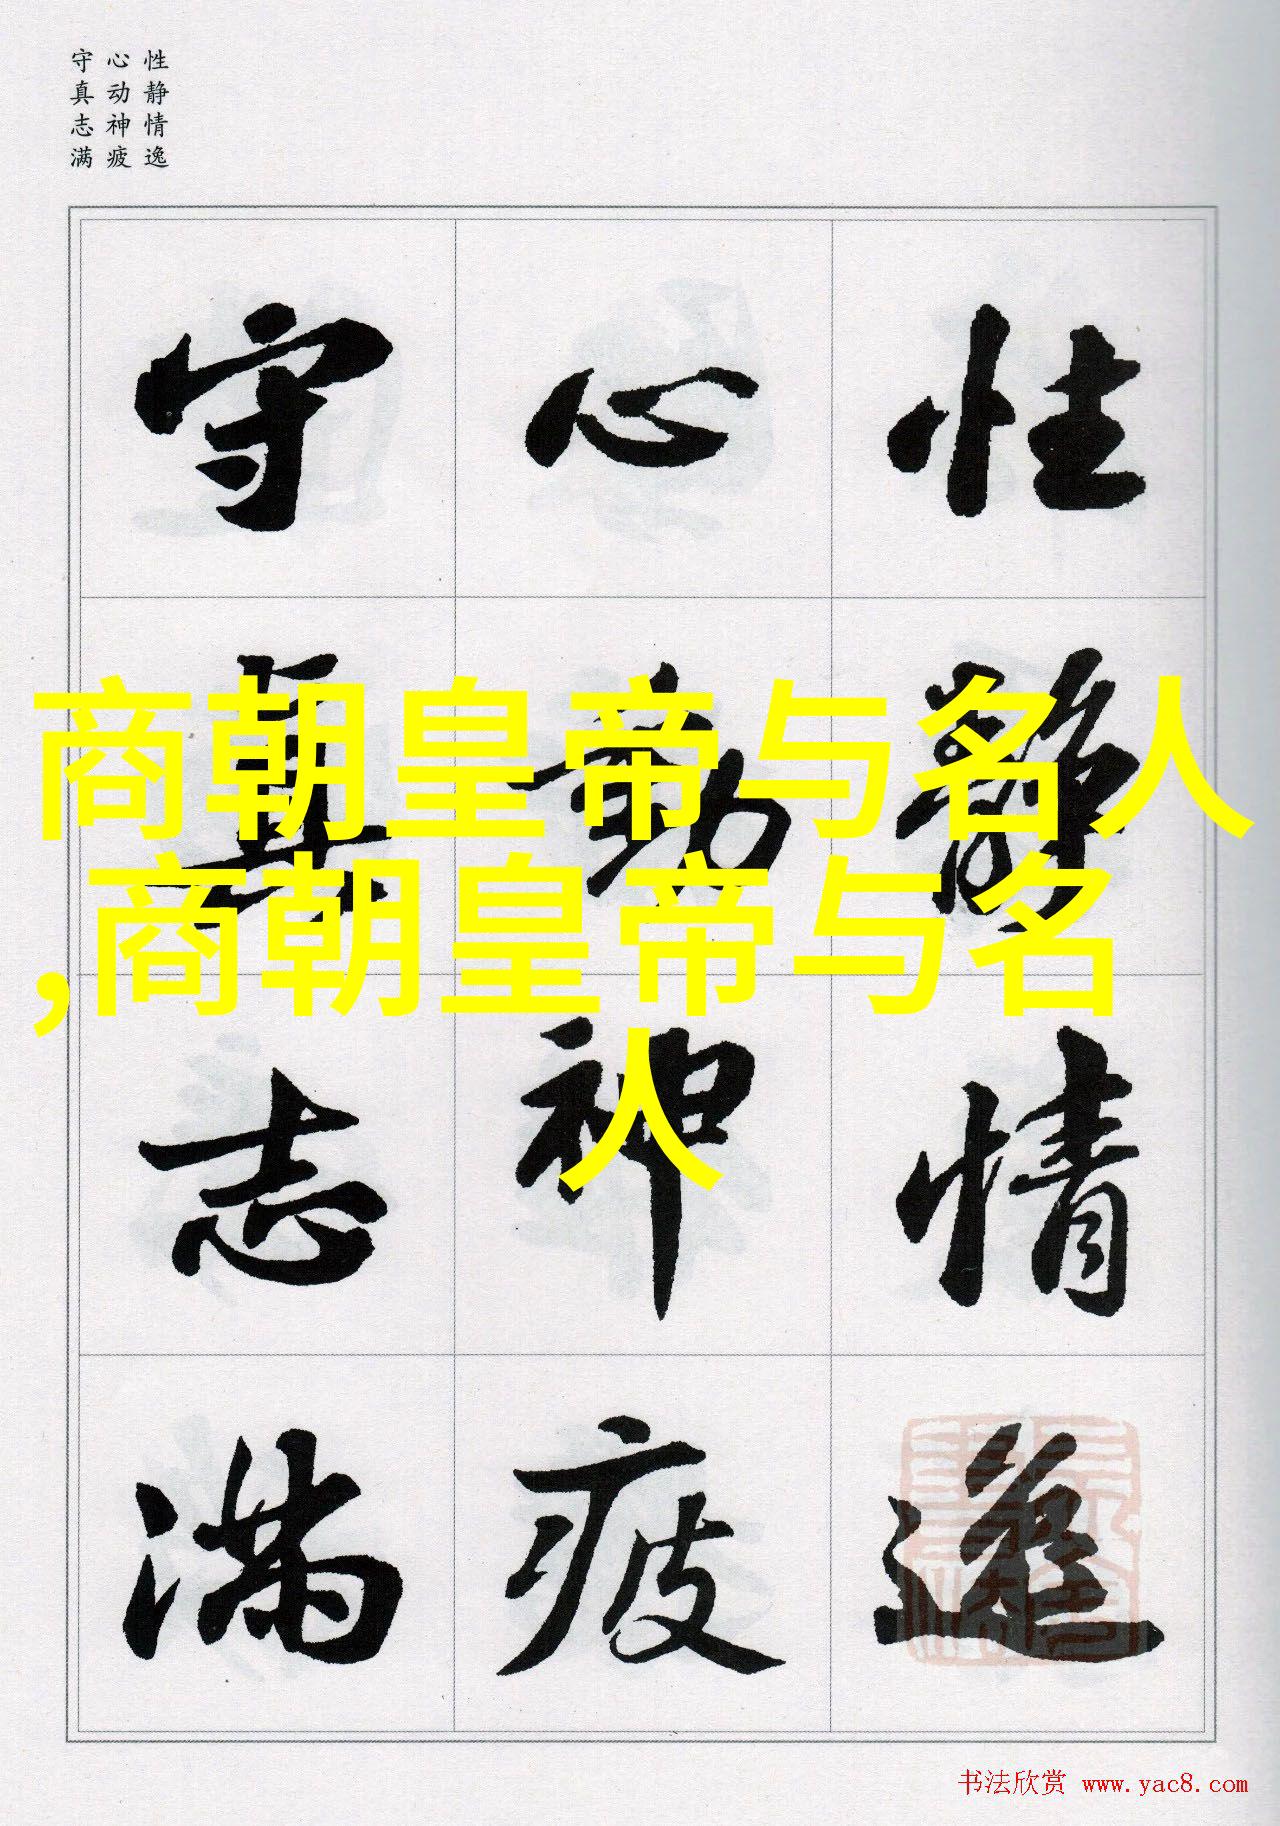 性静情逸
心动神疲
守真志满
性静情逸
心動神疲
守真志满
商朝皇帝与名人
,商朝皇帝与名
人
书法欣赏 www.yac8.com